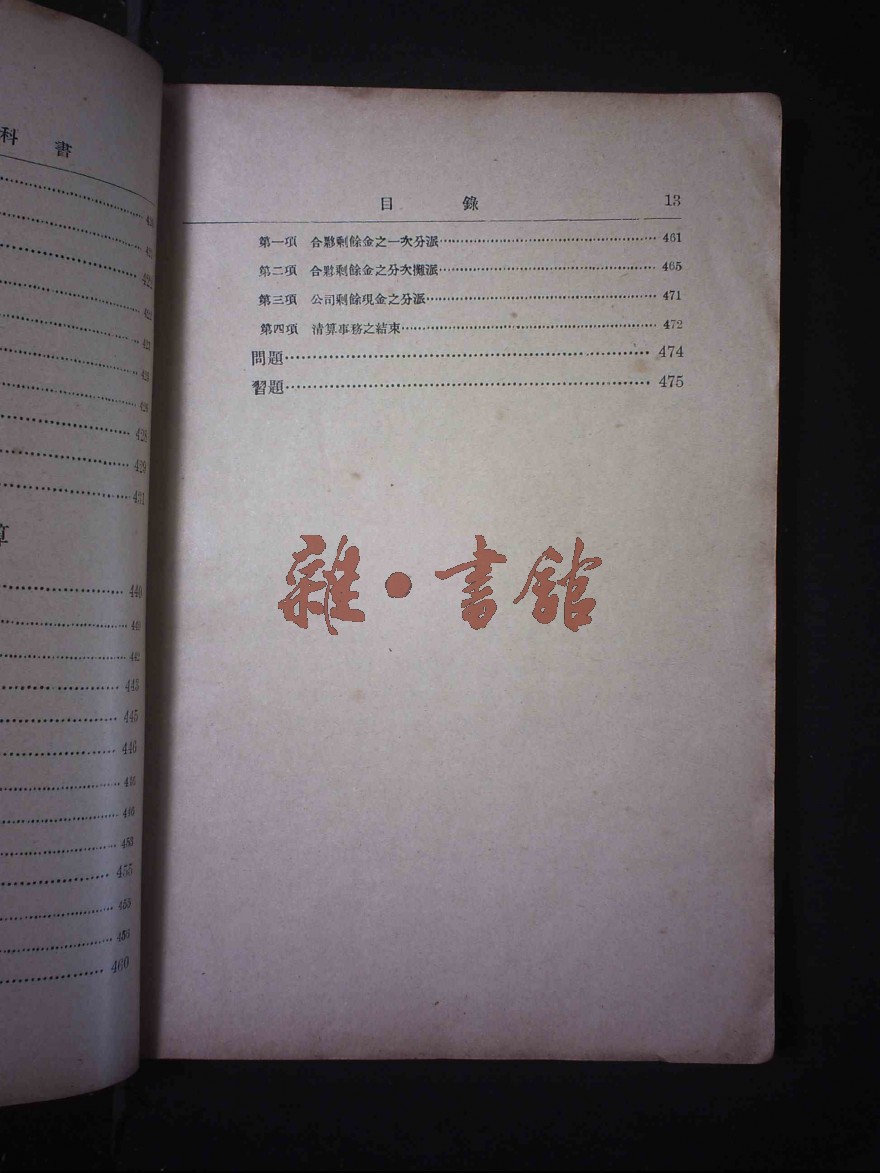 科 書
428
429
431
算
440
441
442
443
445
446
453
455
455
456
460
目 錄 13
第一項 合夥剩餘金之一次分派 461
第二項 合夥剩餘金之分次攤派 465
第三項 公司剩餘現金之分派 471
第四項 清算事務之結束 472
問題 474
習題 475
雜•書館